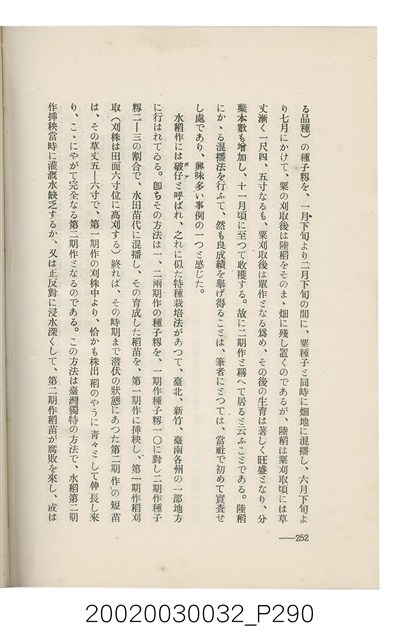 る品種）の種子籾を、一月下旬より二月下旬の間に、粟種子と同時に畑地に混播し、六月下旬よ
り七月にかけて、粟の刈取後は陸稻をそのまゝ畑に殘し置くのであるが、陸稻は粟刈取頃には草
丈漸く一尺四、五寸なるも、粟刈取後は單作となる爲め、その後の生育は著しく旺盛となり、分
蘗本數も增加し、十一月頃に至つて收穫する。故に二期作と稱へて居ると云ふことである。陸稻
にかゝる混播法を行ふて、然も良成績を擧げ得ることは、筆者にとつては、當社で初めて實査せ
し處であり、興味多い事例の一つと感じた。
水稻作には破仔と呼ばれ、之れに似た特種栽培法があつて、臺北、新竹、臺南各州の一部地方
に行はれてゐる。卽ちその方法は一、二兩期作の種子籾を、一期作種子籾一〇に對し二期作種子
籾二―三の割合で、水田苗代に混播し、その育成した稻苗を、第一期作に揷秧し、第一期作稻刈
取（刈株は田面六寸位に高刈する）終れば、その時期まで潜伏の狀態にあつた第二期作の短苗
は、その草丈五―六寸で、第一期作の刈株中より、恰かも株出稻のやうに靑々として伸長し來
り、こゝにやがて完全なる第二期作となるのである。この方法は臺灣獨特の方法で、水稻第二期
作揷秧當時に灌漑水缺乏するか、又は正反對に浸水深くして、第二期作稻苗が腐敗を來し、或は
――252
20020030032_P290